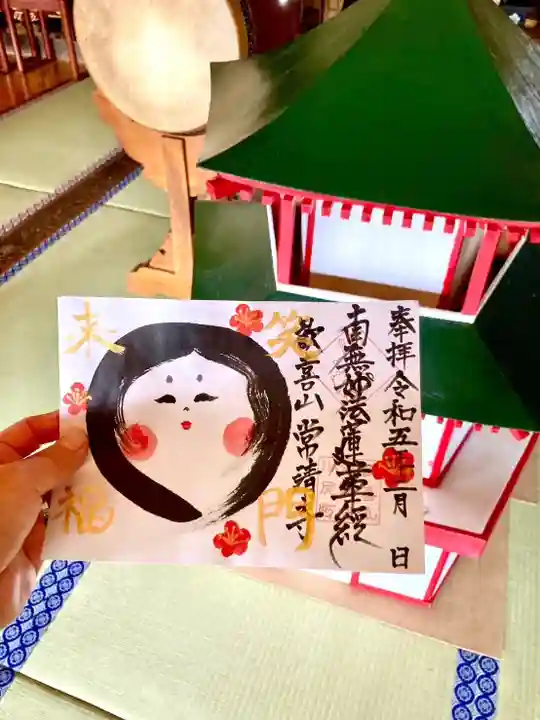 奉拝 令和五年二月 日
南無妙法蓮華経
喜山 常清寺
笑門
来福